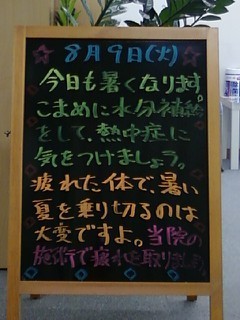 8月9日(火)
今日も暑くなります。
こまめに水分補給
をして、熱中症に
気をつけましょう。
疲れた体で、暑い
夏を乗り切るのは
大変ですよ。当院の
施術で疲れを取りましょう。